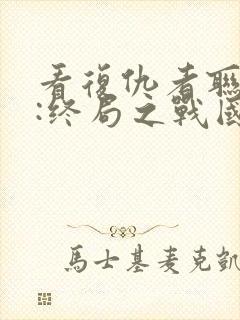 看復仇者聯
:終局之戰國
馬士基麥克凱